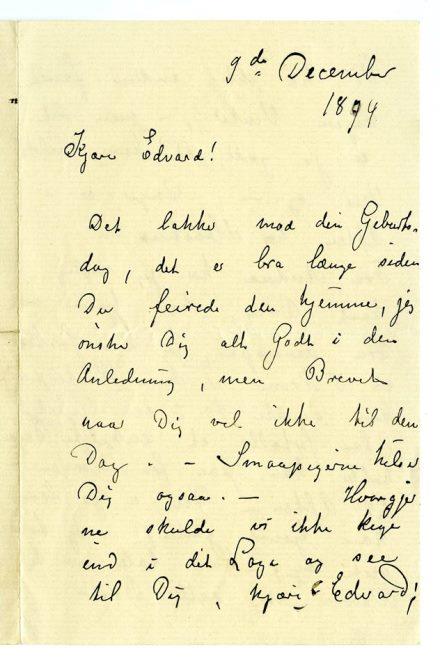 9de December
1894
Kjære Edvard!
Det lakker mod din Geburts-
dag, det er bra længe siden
Du feirede den hjemme, jeg
ønsker Dig alt Godt i den
Anledning, men Brevet
naar Dig vel ikke til den
Dag. - Smaapigerne hilser
Dig ogsaa. - Hvor gjer
ne skulde vi ikke kige
ind i dit Loge og see
til Dig, kjære Edvard,